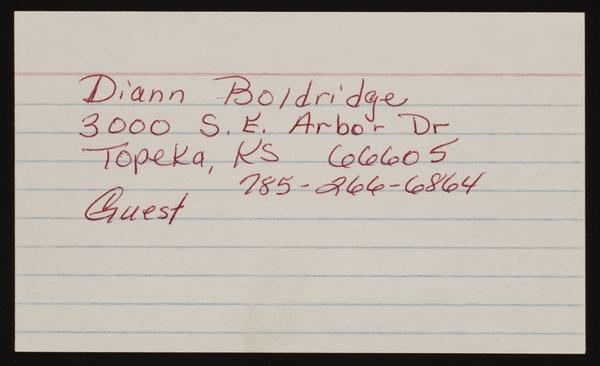 Diann Boldridge
3000 S.E. Arbor Dr
Topeka, KS 66605
785-266-6864
Guest